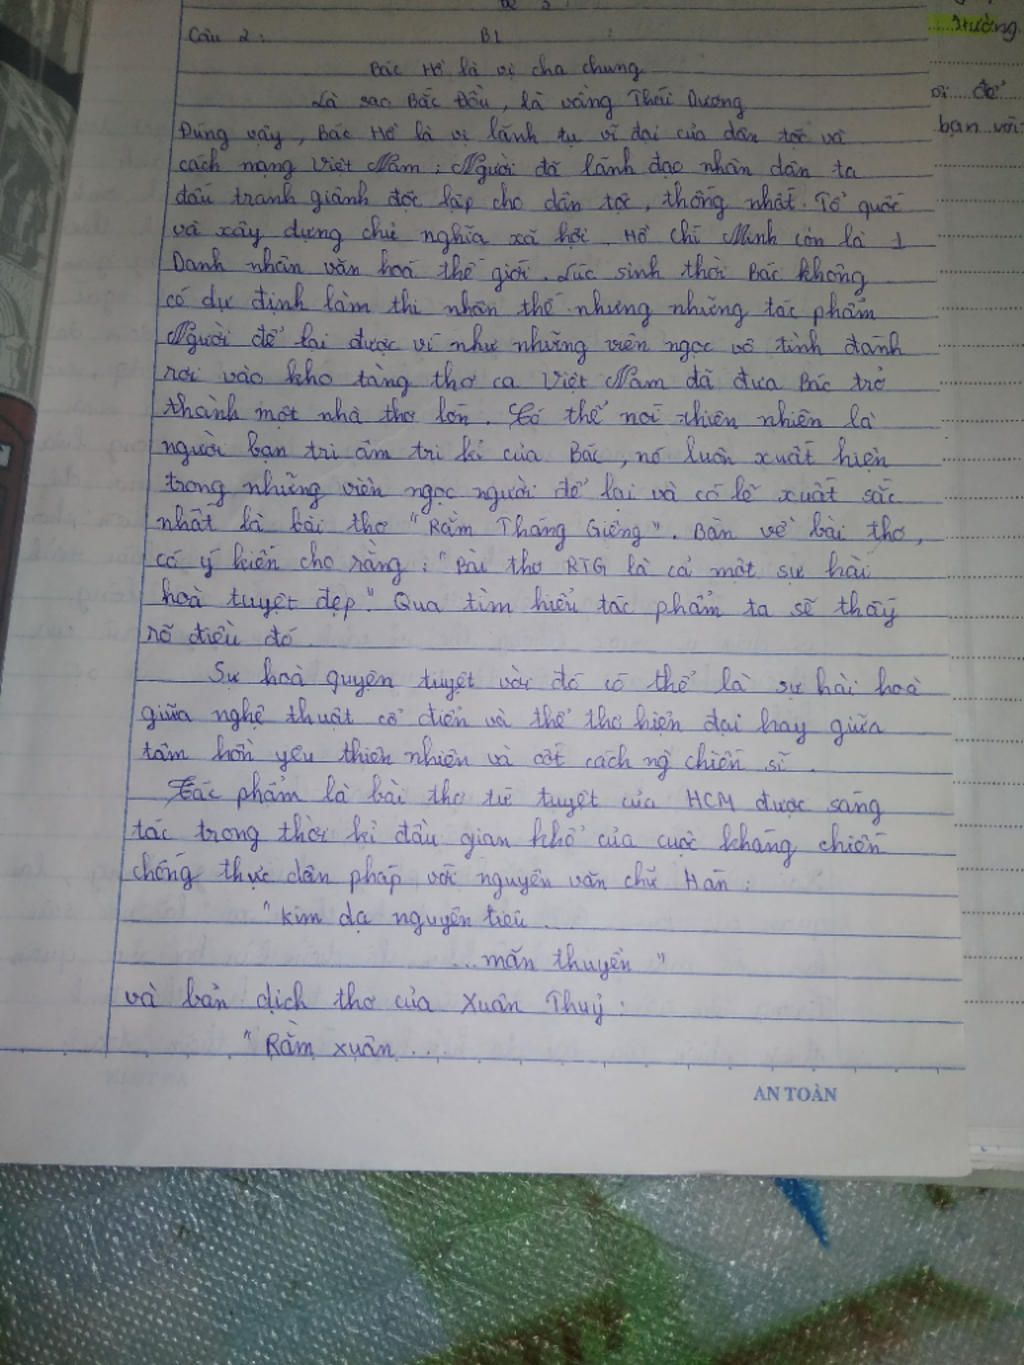 Câu 2: B1
Bác Hồ là vị cha chung
Là sao Bắc Đẩu, là vầng Thái Dương
Đúng vậy, Bác Hồ là vị lãnh tụ vĩ đại của dân tộc và
cách mạng Việt Nam; Người đã lãnh đạo nhân dân ta
đấu tranh giành độc lập cho dân tộc, thống nhất Tổ quốc
và xây dựng chủ nghĩa xã hội. Hồ Chí Minh còn là 1
Danh nhân văn hoá thế giới. Lúc sinh thời Bác không
có dự định làm thi nhân thế nhưng những tác phẩm
Người để lại được ví như những viên ngọc vô tình đánh
rơi vào kho tàng thơ ca Việt Nam đã đưa Bác trở
thành một nhà thơ lớn. Có thể nói thiên nhiên là
người bạn tri âm tri kỉ của Bác, nó luôn xuất hiện
trong những viên ngọc người để lại và có lẽ xuất sắc
nhất là bài thơ "Rằm Tháng Giêng". Bàn về bài thơ,
có ý kiến cho rằng: "Bài thơ RTG là cả một sự hài
hoà tuyệt đẹp." Qua tìm hiểu tác phẩm ta sẽ thấy
rõ điều đó
Sự hoà quyện tuyệt vời đó có thể là sự hài hoà
giữa nghệ thuật cổ điển và thể thơ hiện đại hay giữa
tâm hồn yêu thiên nhiên và cốt cách ng chiến sĩ.
Tác phẩm là bài thơ tứ tuyệt của HCM được sáng
tác trong thời kì đầu gian khổ của cuộc kháng chiến
chống thực dân pháp với nguyên văn chữ Hán:
"Kim dạ nguyên tiêu...
...mãn thuyền"
và bản dịch thơ của Xuân Thuỷ:
"Rằm xuân...
AN TOÀN
trường
ơi để
bạn với